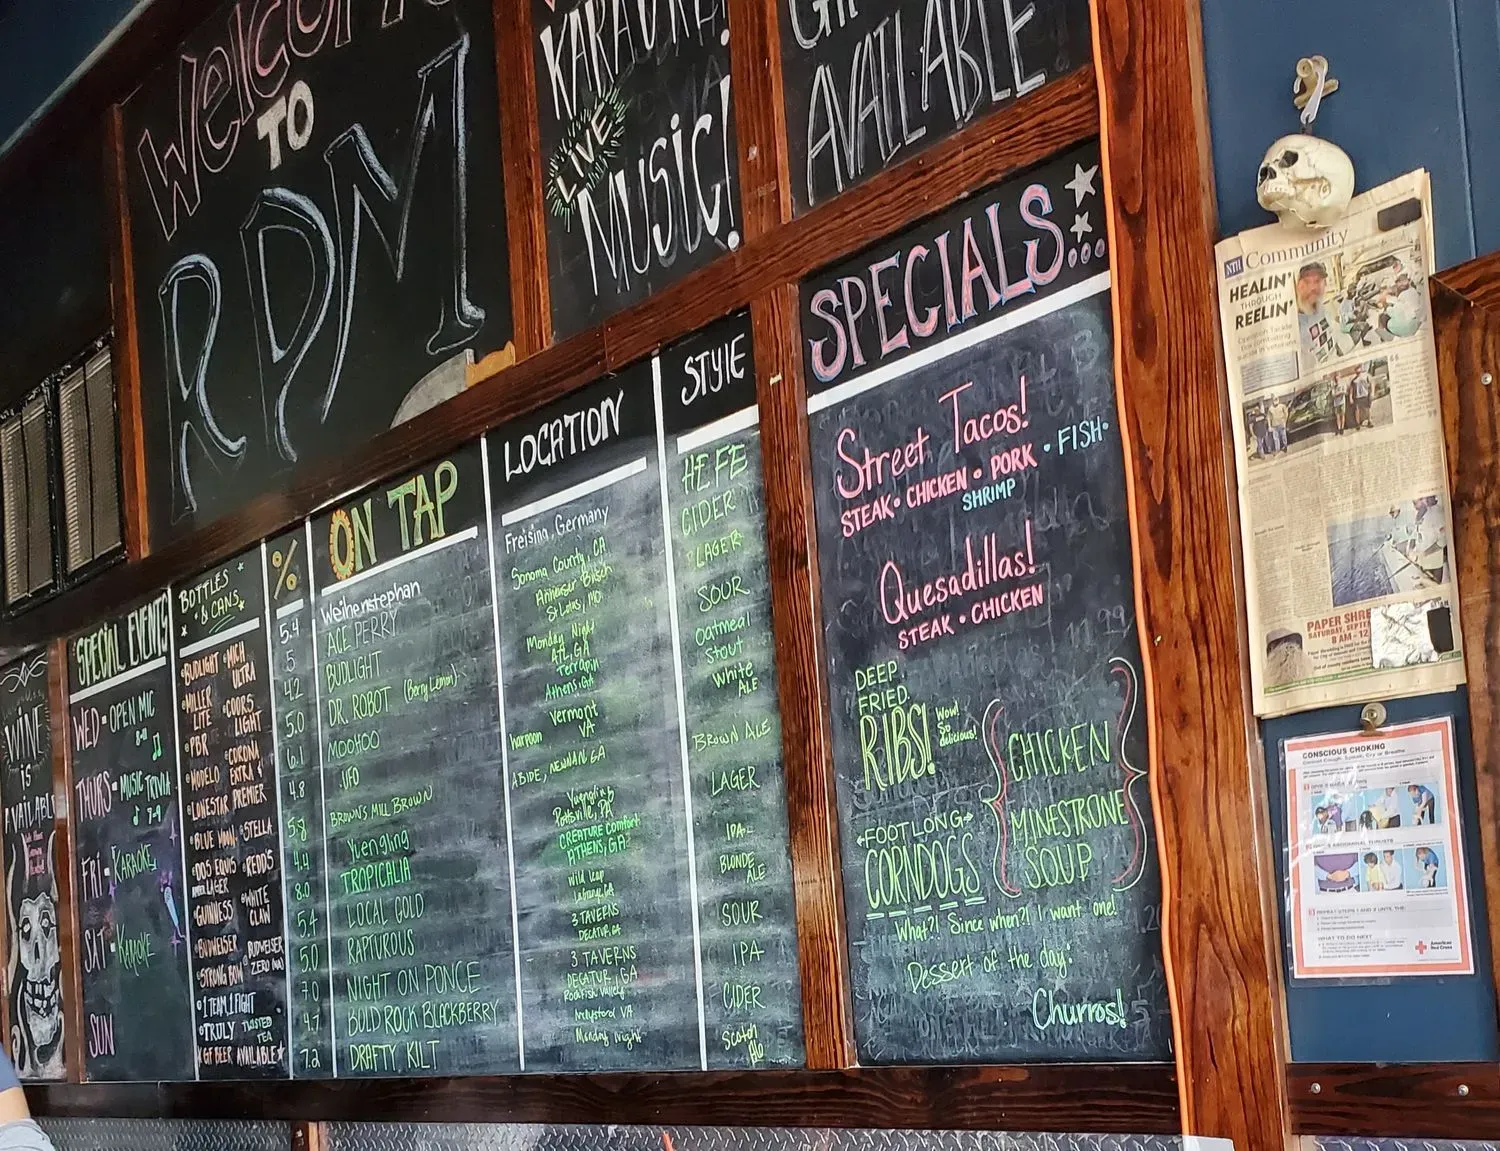 Welcome
TO
RDM
KARAOKE!
LIVE
MUSIC!
AVAILABLE
WINE
IS
AVAILABLE
SPECIAL EVENTS
WED - OPEN MIC
8-11
THURS - MUSIC TRIVIA
7-9
FRI - KARAOKE
SAT - KARAOKE
SUN
BOTTLES
& CANS
BUDLIGHT
MICH ULTRA
MILLER LITE
COORS LIGHT
PBR
CORONA EXTRA & PREMIER
MODELO
LONESTAR
BLUE MOON
STELLA
DOS EQUIS LAGER
REDD'S
GUINNESS
WHITE CLAW
BUDWEISER
BUDWEISER ZERO (NA)
STRONG BOW
1 TEAM 1 FIGHT
TRULY
TWISTED TEA
GF BEER AVAILABLE
%
5.4
5
4.2
5.0
6.1
4.8
5.8
4.4
8.0
5.4
5.0
7.0
4.7
7.2
ON TAP
Weihenstephan
ACE PERRY
BUDLIGHT
DR. ROBOT (Berry Lemon)
MOOHOO
UFO
BROWN'S MILL BROWN
Yuengling
TROPICALIA
LOCAL GOLD
RAPTUROUS
NIGHT ON PONCE
BOLD ROCK BLACKBERRY
DRAFTY KILT
LOCATION
Freising, Germany
Sonoma County, CA
Anheuser Busch
St Louis, MO.
Monday Night
ATL, GA
Terrapin
Athens, GA
Vermont
Harpoon VA
ABIDE, NEWNAN GA
Yuengling
Pottsville, PA
CREATURE Comfort
ATHENS, GA
Wild Leap
LaGrange, GA
3 TAVERNS
DECATUR, GA
3 TAVERNS
DECATUR, GA
Rockfish Valley
Nellysford VA
Monday Night
STYLE
HEFE
CIDER
LAGER
SOUR
Oatmeal
Stout
White
ALE
BROWN ALE
LAGER
IPA
BLONDE
ALE
SOUR
IPA
CIDER
Scotch
Ale
SPECIALS...
Street Tacos!
STEAK • CHICKEN • PORK • FISH •
SHRIMP
Quesadillas!
STEAK • CHICKEN
DEEP
FRIED
RIBS!
Wow!
So
delicious!
CHICKEN
MINESTRONE
SOUP
FOOTLONG
CORNDOGS
What?! Since when?! I want one!
Dessert of the day:
Churros!
NTH Community
HEALIN'
THROUGH
REELIN'
PAPER SHRE
SATURDAY, SEPTE
8 AM - 12
CONSCIOUS CHOKING
Cannot Cough, Speak, Cry or Breathe
ABDOMINAL THRUSTS
REPEAT STEPS 1 AND 2 UNTIL THE:
WHAT TO DO NEXT
American
Red Cross